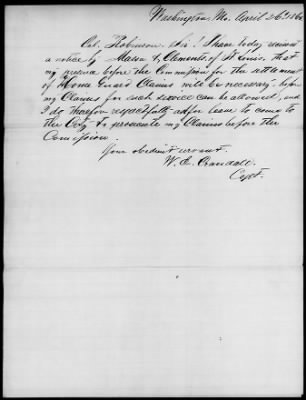 Washington, Mo. April 26th 186
Col. Robinson. Sir! I have today received
a notice by Mason & Clements, of St Louis, that
my presence before the Commission for the settlement
of Home Guard Claims will be necessary before
my Claims for such service can be allowed, and
I do therefore respectfully ask for leave to come to
the City to prosecute my Claims before the
Comission.
Your obedient servant.
W. E. Crandall.
Capt.